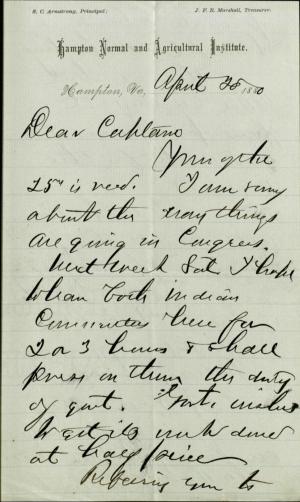 S. C. Armstrong, Principal; J. F. B. Marshall, Treasurer.
Hampton Normal and Agricultural Institute.
Hampton, Va., April 28 1880
Dear Captain
Yours of the
25" is recd. I am sorry
about the way things
are going in Congress.
Next week Sat. I hope
to have both Indian
Committees here for
2 or 3 hours & shall
press on them the duty
of govt. Govt. wishes
to get its work done
at half price
Referring you to